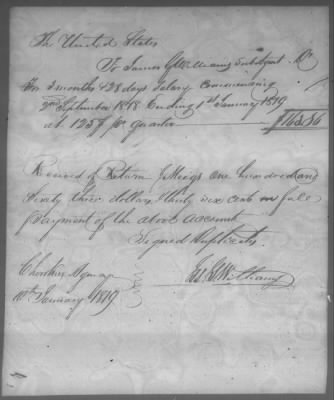 The United States
To James G Williams Sub Agent Dr
For 3 months & 28 days Salary Commencing
2nd September 1818 Ending 1st January 1819
at 125$ pr quarter $163.36
Received of Return J Meigs one hundred and
Sixty three dollars thirty six cents in full
Payment of the above account
Signed Duplicates.
Cherokee Agency
10th January 1819
Jas G Williams